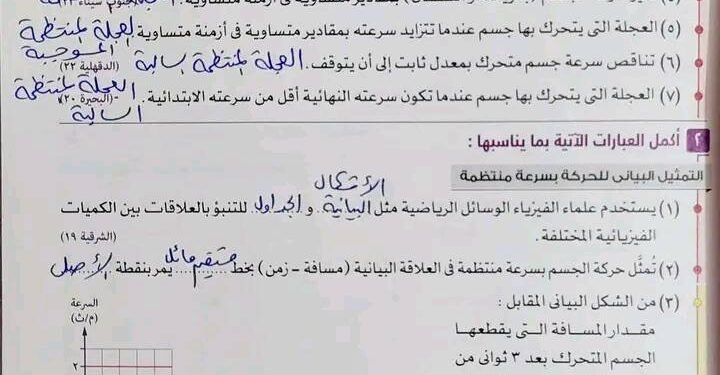 (٥) العجلة التى يتحرك بها جسم عندما تتزايد سرعته بمقادير متساوية فى أزمنة متساوية. العجلة المنتظمة
الموجبة
(٦) تناقص سرعة جسم متحرك بمعدل ثابت إلى أن يتوقف. العجلة المنتظمة سالبة (الدقهلية ٢٢)
(٧) العجلة التى يتحرك بها جسم عندما تكون سرعته النهائية أقل من سرعته الابتدائية. (البحيرة ٢٠) العجلة المنتظمة
السالبة
٢ أكمل العبارات الآتية بما يناسبها :
التمثيل البيانى للحركة بسرعة منتظمة
الأشكال
(١) يستخدم علماء الفيزياء الوسائل الرياضية مثل البيانية و الجداول للتنبؤ بالعلاقات بين الكميات
الفيزيائية المختلفة. (الشرقية ١٩)
(٢) تُمثَّل حركة الجسم بسرعة منتظمة فى العلاقة البيانية (مسافة - زمن) بخط مستقيم مائل يمر بنقطة الأصل
(٣) من الشكل البيانى المقابل :
مقدار المسافة التى يقطعها
الجسم المتحرك بعد ٣ ثوانى من
السرعة
(م/ث)
٢